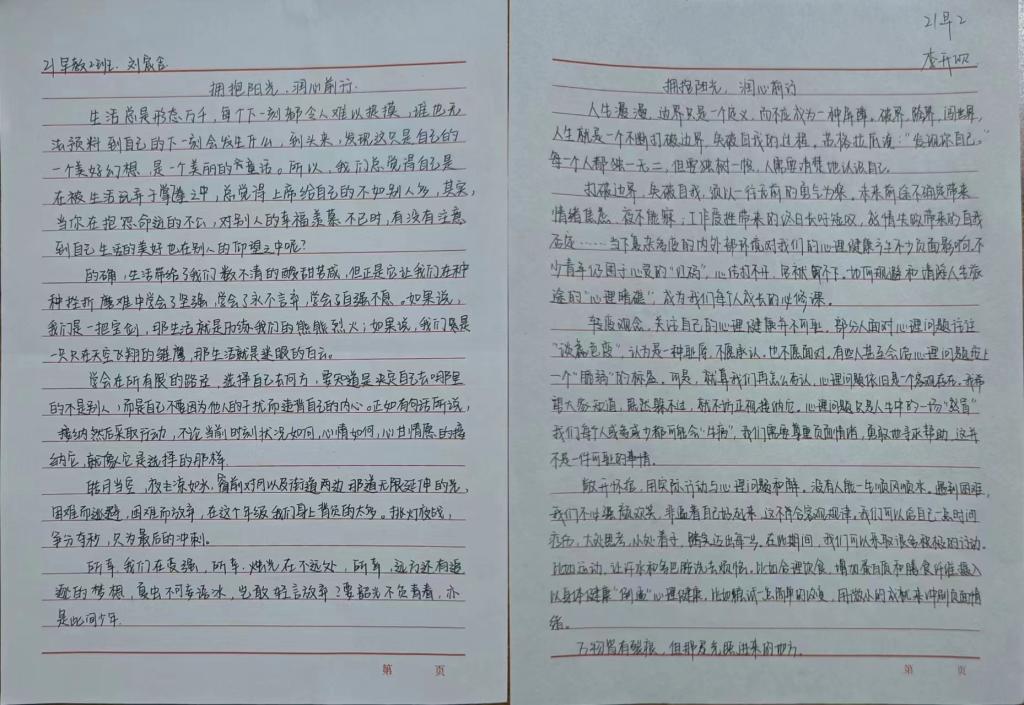 21早教2班 刘
拥抱阳光，润心前行
生活总是形态万千，每个下一刻都令人难以捉摸，谁也无
法预料到自己的下一刻会发生什么，到头来，发现这只是自己的
一个美好幻想，是一个美丽的童话。所以，我们总觉得自己是
在被生活玩弄于掌隆之中，总觉得上帝给自己的不如别人多，其实，
当你在抱怨命运的不公，对别人的幸福羡慕不已时，有没有注意
到自己生活的美好也在别人的仰望之中呢？
的确，生活带给了我们数不清的酸甜苦咸，但正是它让我们在种
种挫折磨难中学会了坚强，学会了永不言弃，学会了自强不息。如果说，
我们是一把宝剑，那生活就是历练我们的熊熊烈火；如果说，我们是
一只只在天空飞翔的雏鹰，那生活就是迷眼的白云。
学会在所有限的路径，选择自己去何方，要知道是决定自己去哪里
的不是别人，而是自己不要因为他人的干扰而违背自己的内心。正如有句话所说，
接纳然后采取行动，不论当前时刻状况如何，心情如何，心甘情愿的接
纳它，就像它是选择的那样。
皓月当空，夜色凉如水，窗前对月以及街道两边那道无限延伸的光，
困难而逃避，困难而放弃，在这个年级我们身上背负的太多。挑灯夜战，
争分夺秒，只为最后的冲刺。
所幸，我们在变强，所幸，烛光在不远处，所幸，远方还有追
逐的梦想，夏虫不可奏语冰，岂敢轻言放弃？要韶光不负青春，亦
是此间少年
第 页
21早2
李
拥抱阳光，润心前行
人生漫漫，边界只是一个定义，而不应成为一种屏障。破界，跨界，阔世界，
人生就是一个不断打破边界，突破自我的过程，苏格拉底说：“发现你自己。”
每个人都独一无二，但要独树一帜，人需要清楚地认识自己。
打破边界，突破自我，须以一行无前的勇气为桨。未来前途不确定带来
情绪焦虑，夜不能寐；工作压推带来的终日长吁短叹，感情失败带来的自我
否定……当下复杂多变的内外部环境对我们的心理健康产生不少负面影响，不
少青年仍困于心灵的“风码”，心结打不开，
途的“心理暗礁”，成为我们每个人成长的必修课。
转变观念，关注自己的心理健康并不可耻，部分人面对心理问题往往
“谈禽色变”，认为是一种耻辱，不愿承认，也不愿面对，有些人甚至会给心理问题贴上
一个“脆弱”的标签。可是，就算我们再怎么否认，心理问题依旧是一个客观存在。我希
望大家知道，既然躲不过，就不妨正视接纳它。心理问题只是人生中的一场“感冒”
我们每个人或多或少都可能会“生病”，我们需要尊重负面情绪，勇敢地寻求帮助，这并
不是一件可耻的事情。
敞开怀抱，用实际行动与心理问题和解。没有人能一生顺风顺水。遇到困难，
我们不必强颜欢笑，非逼着自己好起来，这不符合客观规律，我们可以给自己一点时间
疗伤，大处思考，小处着手，踏实迈出每一步。在此期间，我们可以采取很多积极的行动。
比如运动，让汗水和多巴胺洗去烦恼。比如合理饮食，增加蛋白质和膳食纤维摄入
以身体健康“倒逼”心理健康，比如尝试一些简单的改变，用微小的成就来冲刷负面情
绪。
万物皆有裂痕，但那是光照进来的地方。
第 页